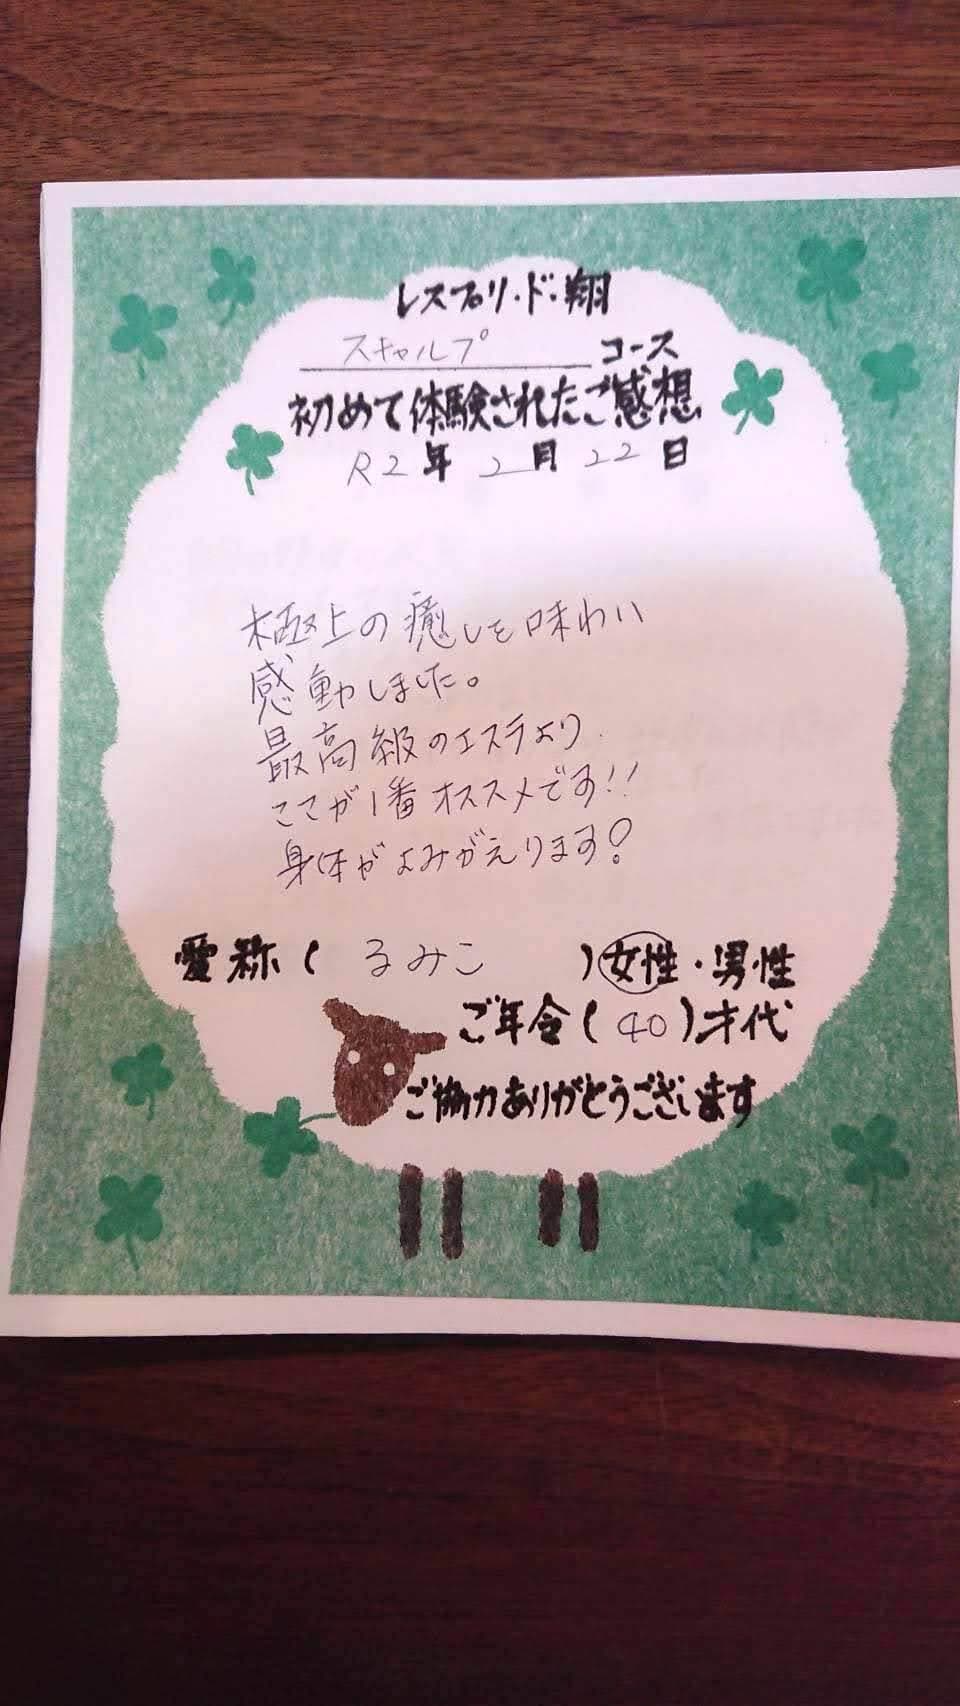 レスプリ・ド・翔
スキャルプ コース
初めて体験されたご感想
R2年 2月 22日
極上の癒しを味わい
感動しました。
最高級のエステより
ここが1番オススメです!!
身体がよみがえります!
愛称( るみこ )女性・男性
ご年令(40)才代
ご協力ありがとうございます